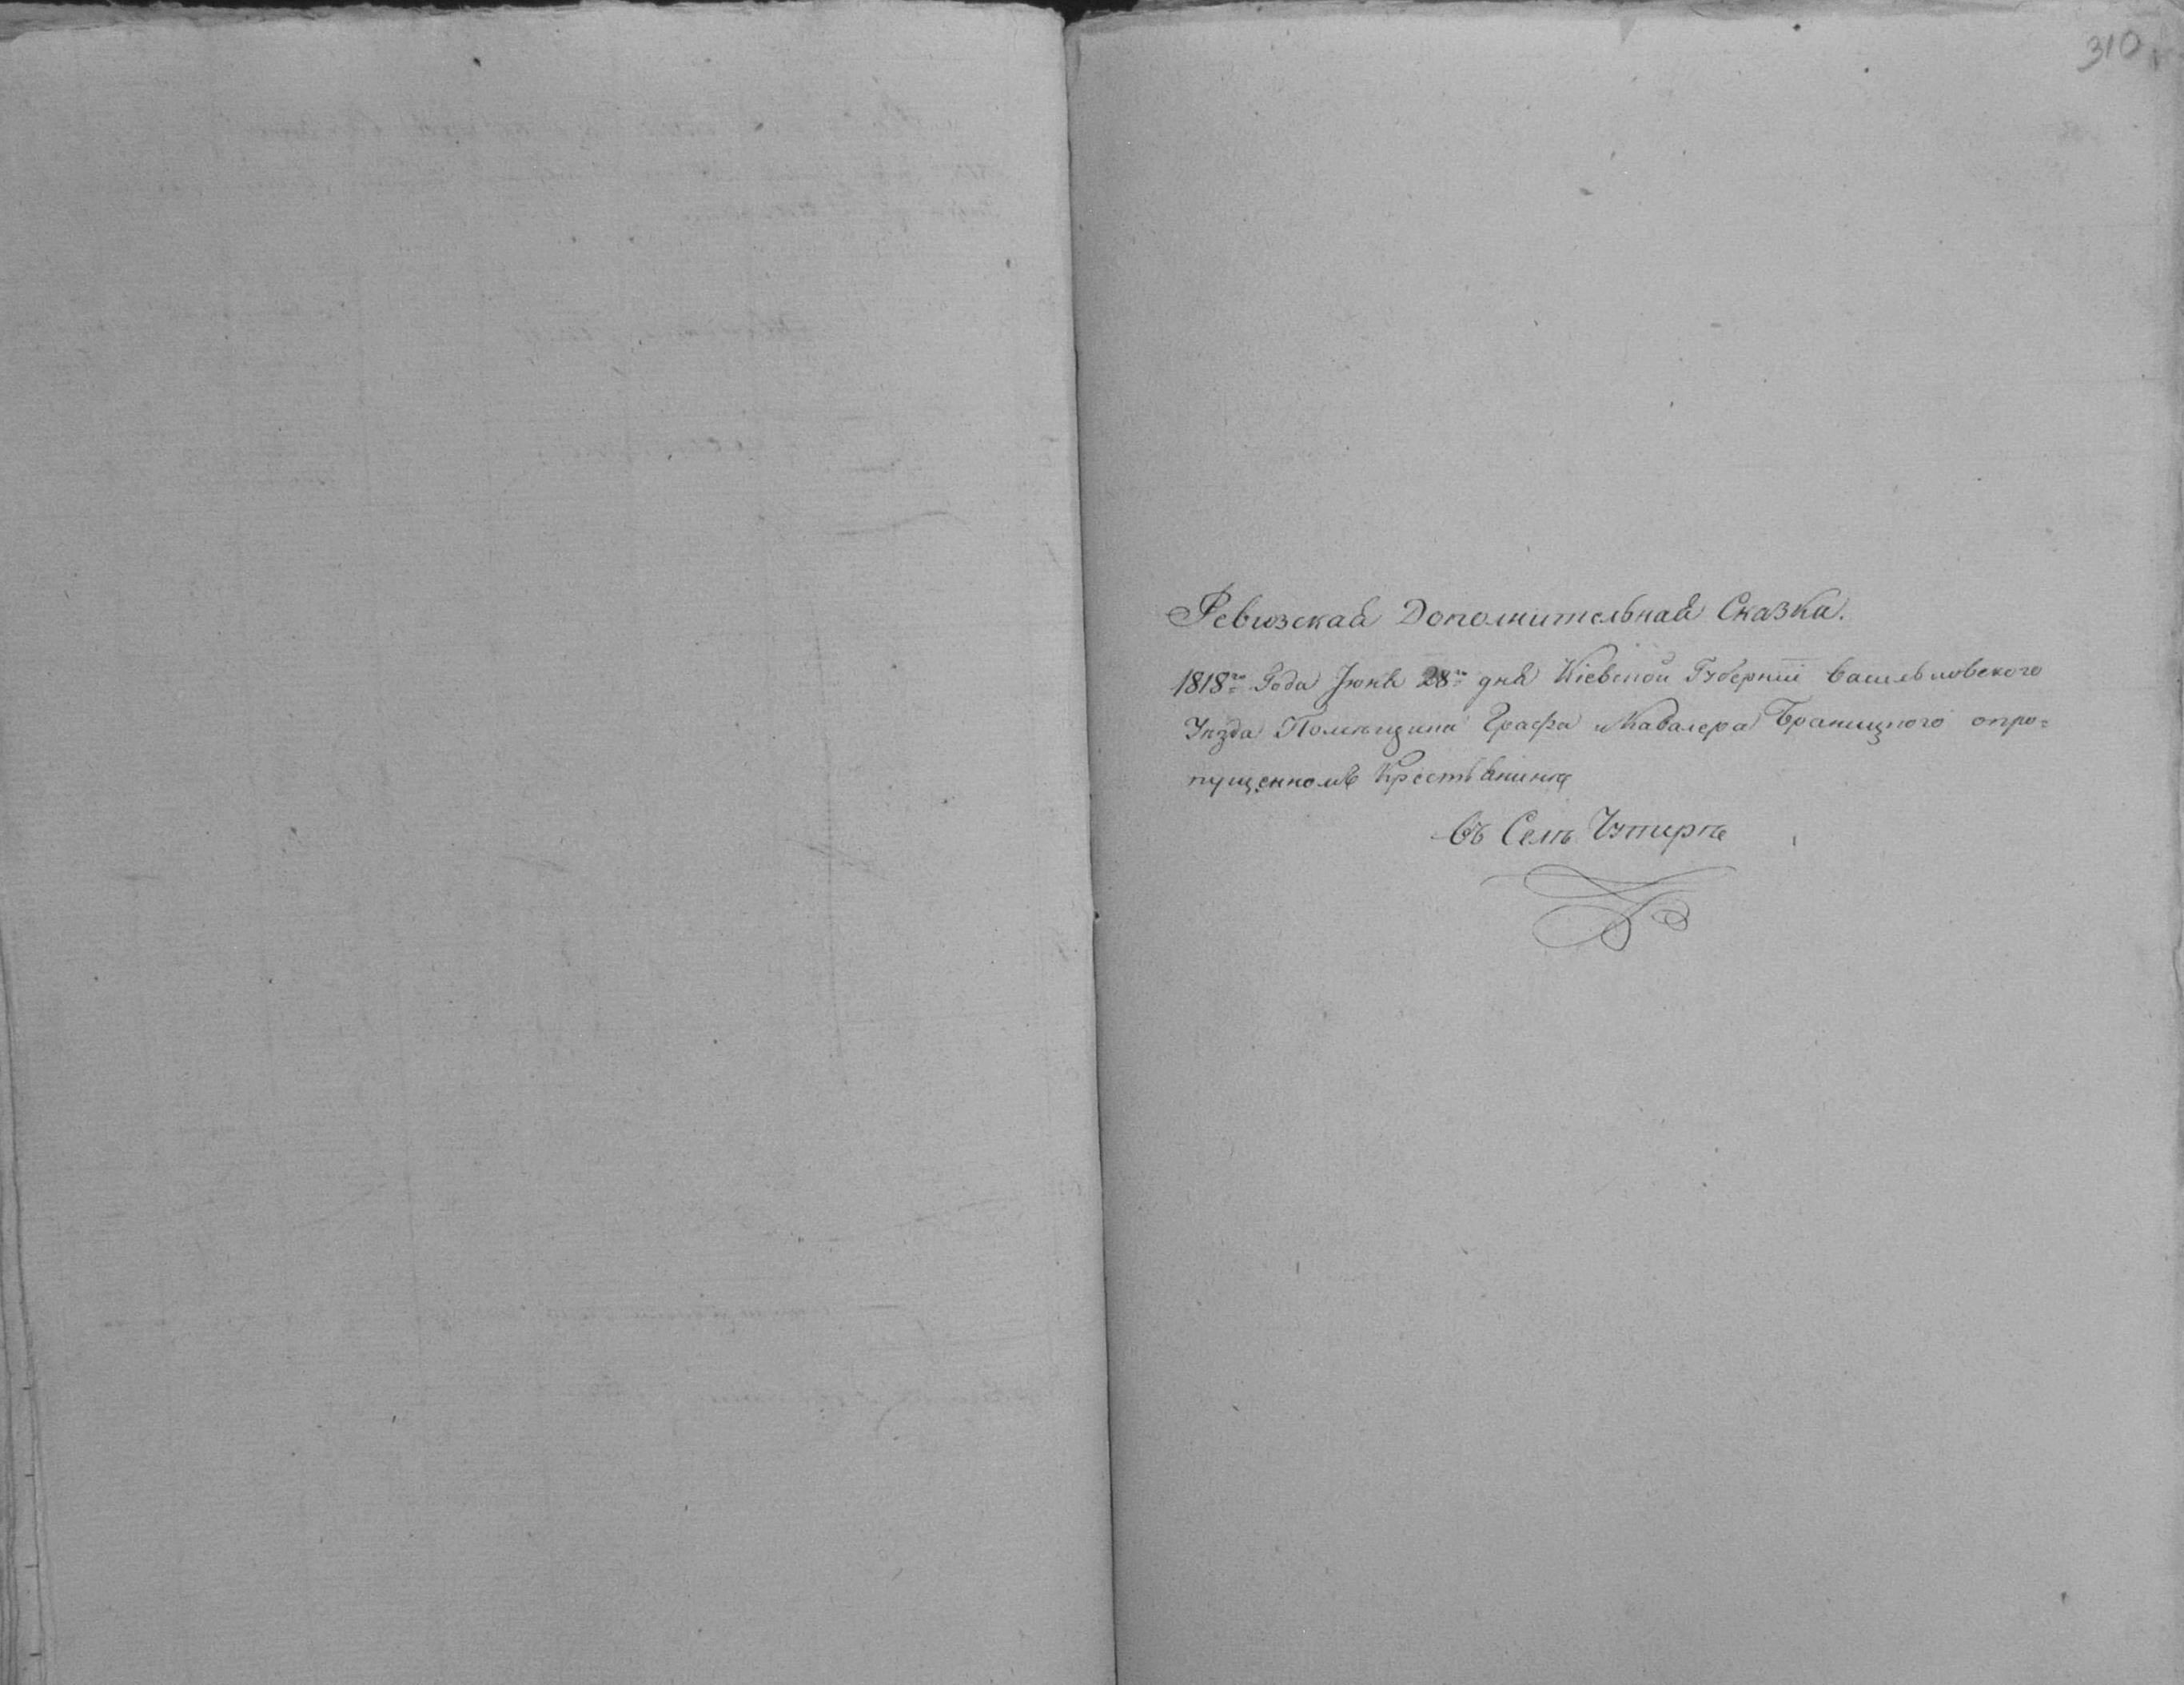 310
Ревизская Дополнительная Сказка.
1818го Года Июня 28го дня Кіевской Губерніи Васильковского
Уезда Помещика Графа и Кавалера Браницкого о про=
пущенномъ Крестьянине
въ Селе